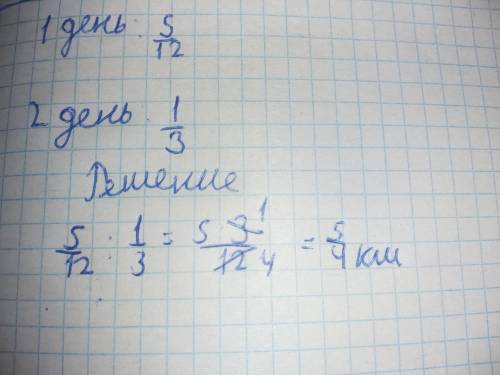 1 день: 5/12
2 день. 1/3
Решение
5/12 : 1/3 = 5 3 1/12 4 = 5/4 км